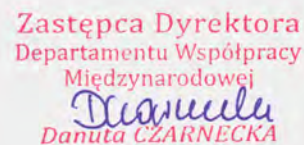 Zastępca Dyrektora
Departamentu Współpracy
Międzynarodowej
Danuta CZARNECKA